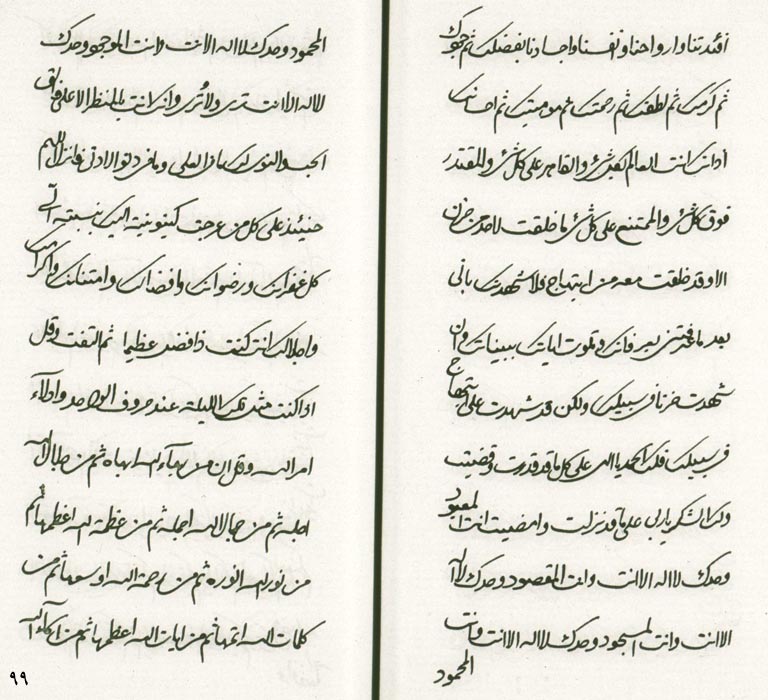 أفئدتنا وارواحنا وانفسنا واجسادنا بفضلك ثم جودك
ثم كرمك ثم لطفك ثم رحمتك ثم موهبتك ثم احسانك
اذ انك انت العالم بكل شئ والقاهر على كل شئ والمقتدر
فوق كل شئ والممتنع على كل شئ ما خلقت لاحد من حزن
الا وقد خلقت معه من ابتهاج فلاشهدنك بانى
بعد ما عرفتنى وتلوت اياتك ببيناتك لن
شهدت حزنا فى سبيلك ولكن قد شهدت على ابتهاج
فى سبيلك فلك الحمد يا الهى على كل ما قد قدرت وقضيت
ولك الشكر يا ربى على ما قد نزلت وامضيت انت المعبود
وحدك لا اله الا انت وانت المقصود وحدك لا اله
الا انت وانت المسجود وحدك لا اله الا انت وانت
المحمود
المحمود وحدك لا اله الا انت وانت الموجود وحدك
لا اله الا انت ترى ولا تُرى وانك انت بالمنظر الاعلى
العلى وما فى دنو الادنى فانزل اللهم
حينئذ على كل من عرجت كينونيته اليك بنسبته الى
كل غفرانك ورضوانك وافضالك وامتنانك واكرامك
واجلالك انك كنت ذا فضل عظيما ثم التفت وقل
اذا كنت مثل تلك الليلة عند حروف الواحد وادلآء
امر الله وقل ان من بهآء الله ابهاه ثم من جلال الله
اجله ثم من جمال الله اجمله ثم من عظمة الله اعظمها ثم
من نور الله انوره ثم من رحمة الله اوسعها ثم من
كلمات الله اتمها ثم من ايات الله اعظمها ثم من اسمآء الله
٩٩